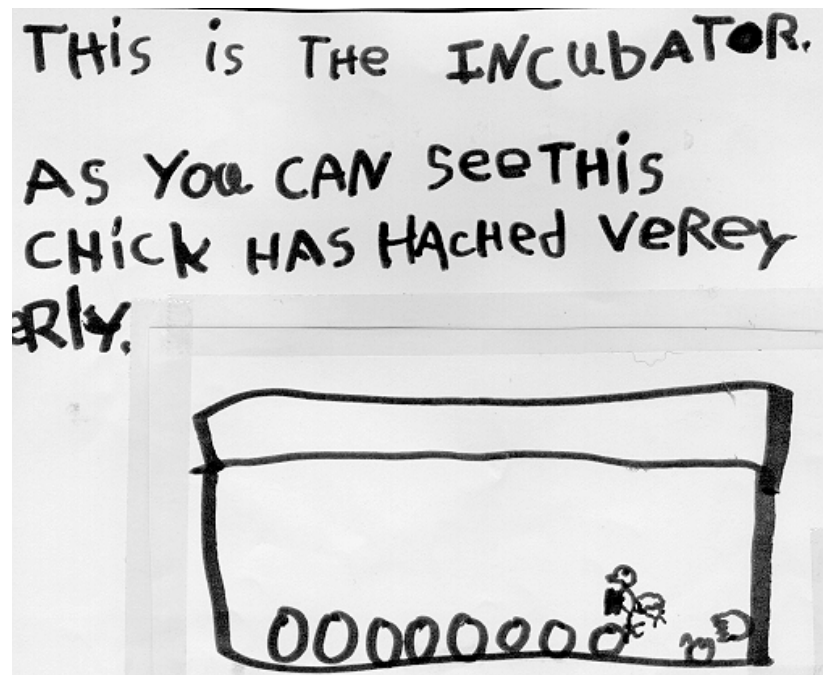 THis is THe INCubATOR.
AS YOu CAN SeeTHiS
CHicK HAS HACHed VeReY
eRlY.